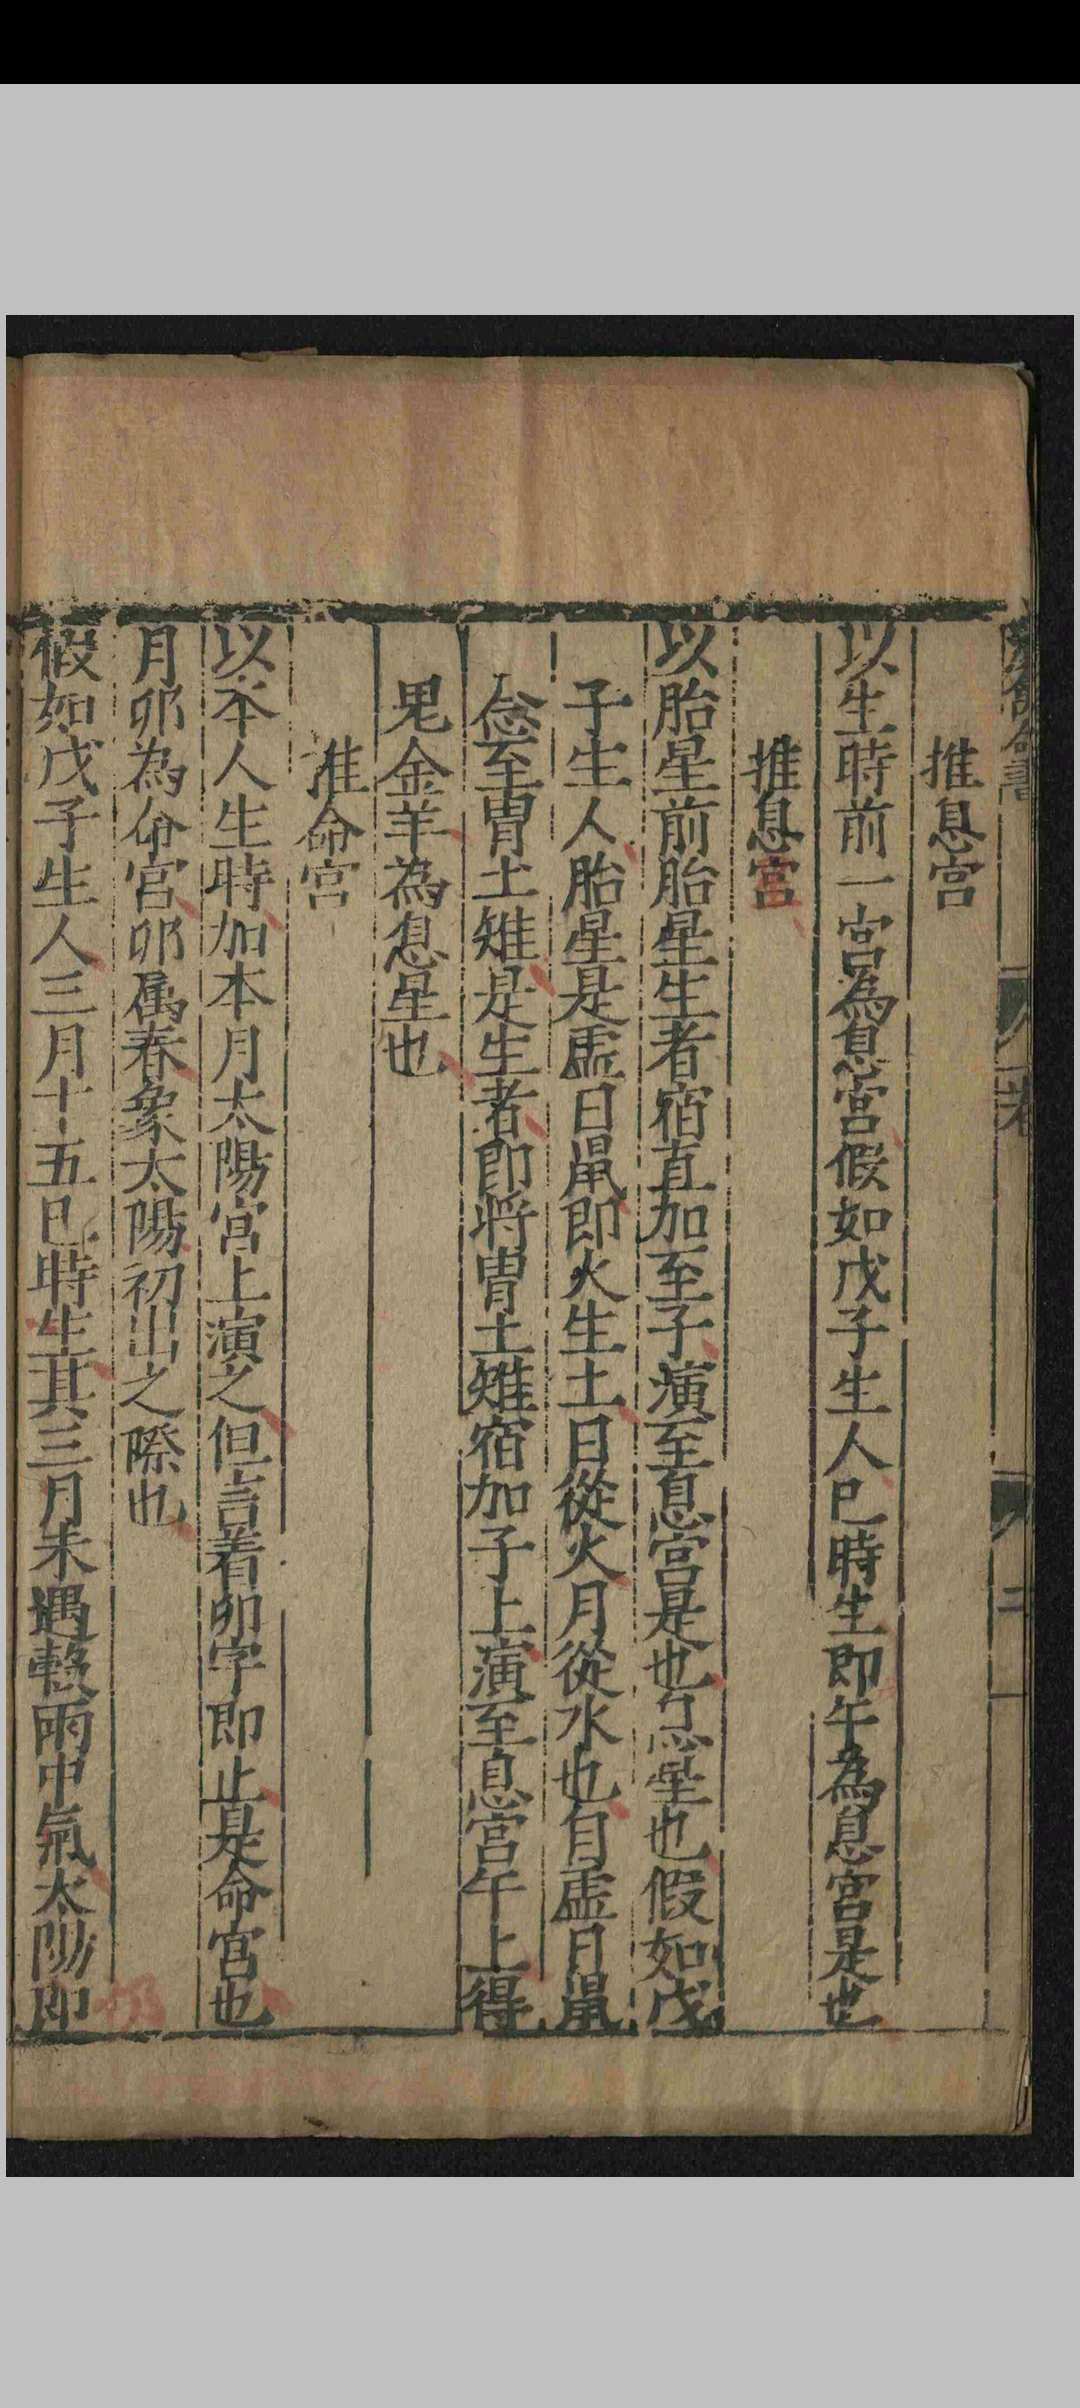 推息宮
以生時前一宮為息宮假如戊子生人巳時生即午為息宮是也
推息宮
以胎星前胎星生者宿直加至子演至息宮是也息星也假如戊
子生人胎星是虛日鼠即火生土日從火月從水也自虛日鼠
至胃土雉是生者即将胃土雉宿加子上演至息宮午上得
鬼金羊為息星也
推命宮
以本人生時加本月太陽宮上演之但言着卯字即止是命宮也
月卯為命宮卯属春象太陽初出之際也
假如戊子生人三月十五巳時生其三月未遇穀雨中氣太陽即
卷